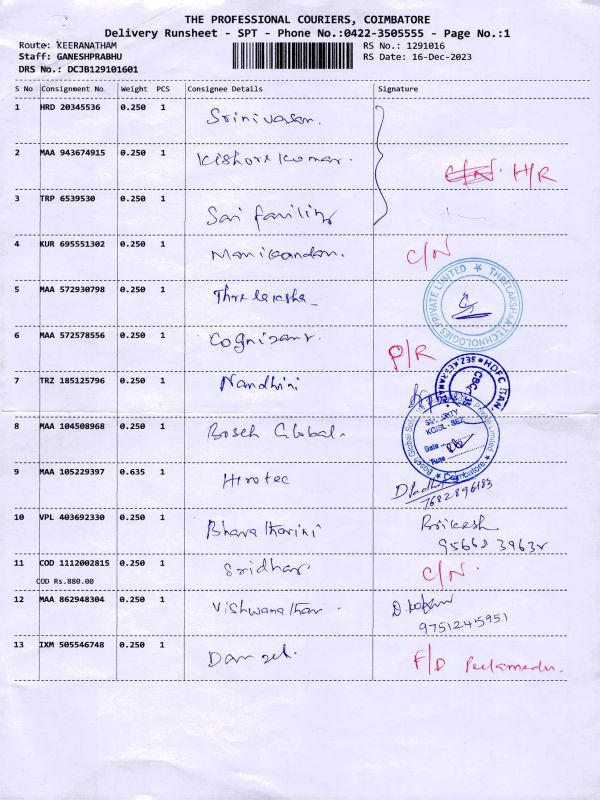 THE PROFESSIONAL COURIERS, COIMBATORE
Delivery Runsheet - SPT - Phone No.:0422-3505555 - Page No.:1
Route: KEERANATHAM RS No.: 1291016
Staff: GANESHPRABHU RS Date: 16-Dec-2023
DRS No.: DCJB129101601
S No Consignment No. Weight PCS Consignee Details Signature
1 HRD 20345536 0.250 1 Srinivasan.
2 MAA 943674915 0.250 1 Kishore Kumar. H/R
3 TRP 6539530 0.250 1 Sai
4 KUR 695551302 0.250 1 Manikandan. C/N
THRELAKSHA TECHNOLOGIES PRIVATE LIMITED
5 MAA 572930798 0.250 1 Threlaksha
6 MAA 572578556 0.250 1 Cognizant. P/R
7 TRZ 185125796 0.250 1 Nandhini
8 MAA 104508968 0.250 1 Bosch Global.
SECURITY
Date
Time
Coimbatore
9 MAA 105229397 0.635 1 Hirotec
7682896183
10 VPL 403692330 0.250 1 Bharatharini
11 COD 1112002815 0.250 1 Sridhar. C/N.
COD Rs.880.00
12 MAA 862948304 0.250 1 Vishwanathan.
9751245951
13 IXM 505546748 0.250 1 F/D Peelamedu.